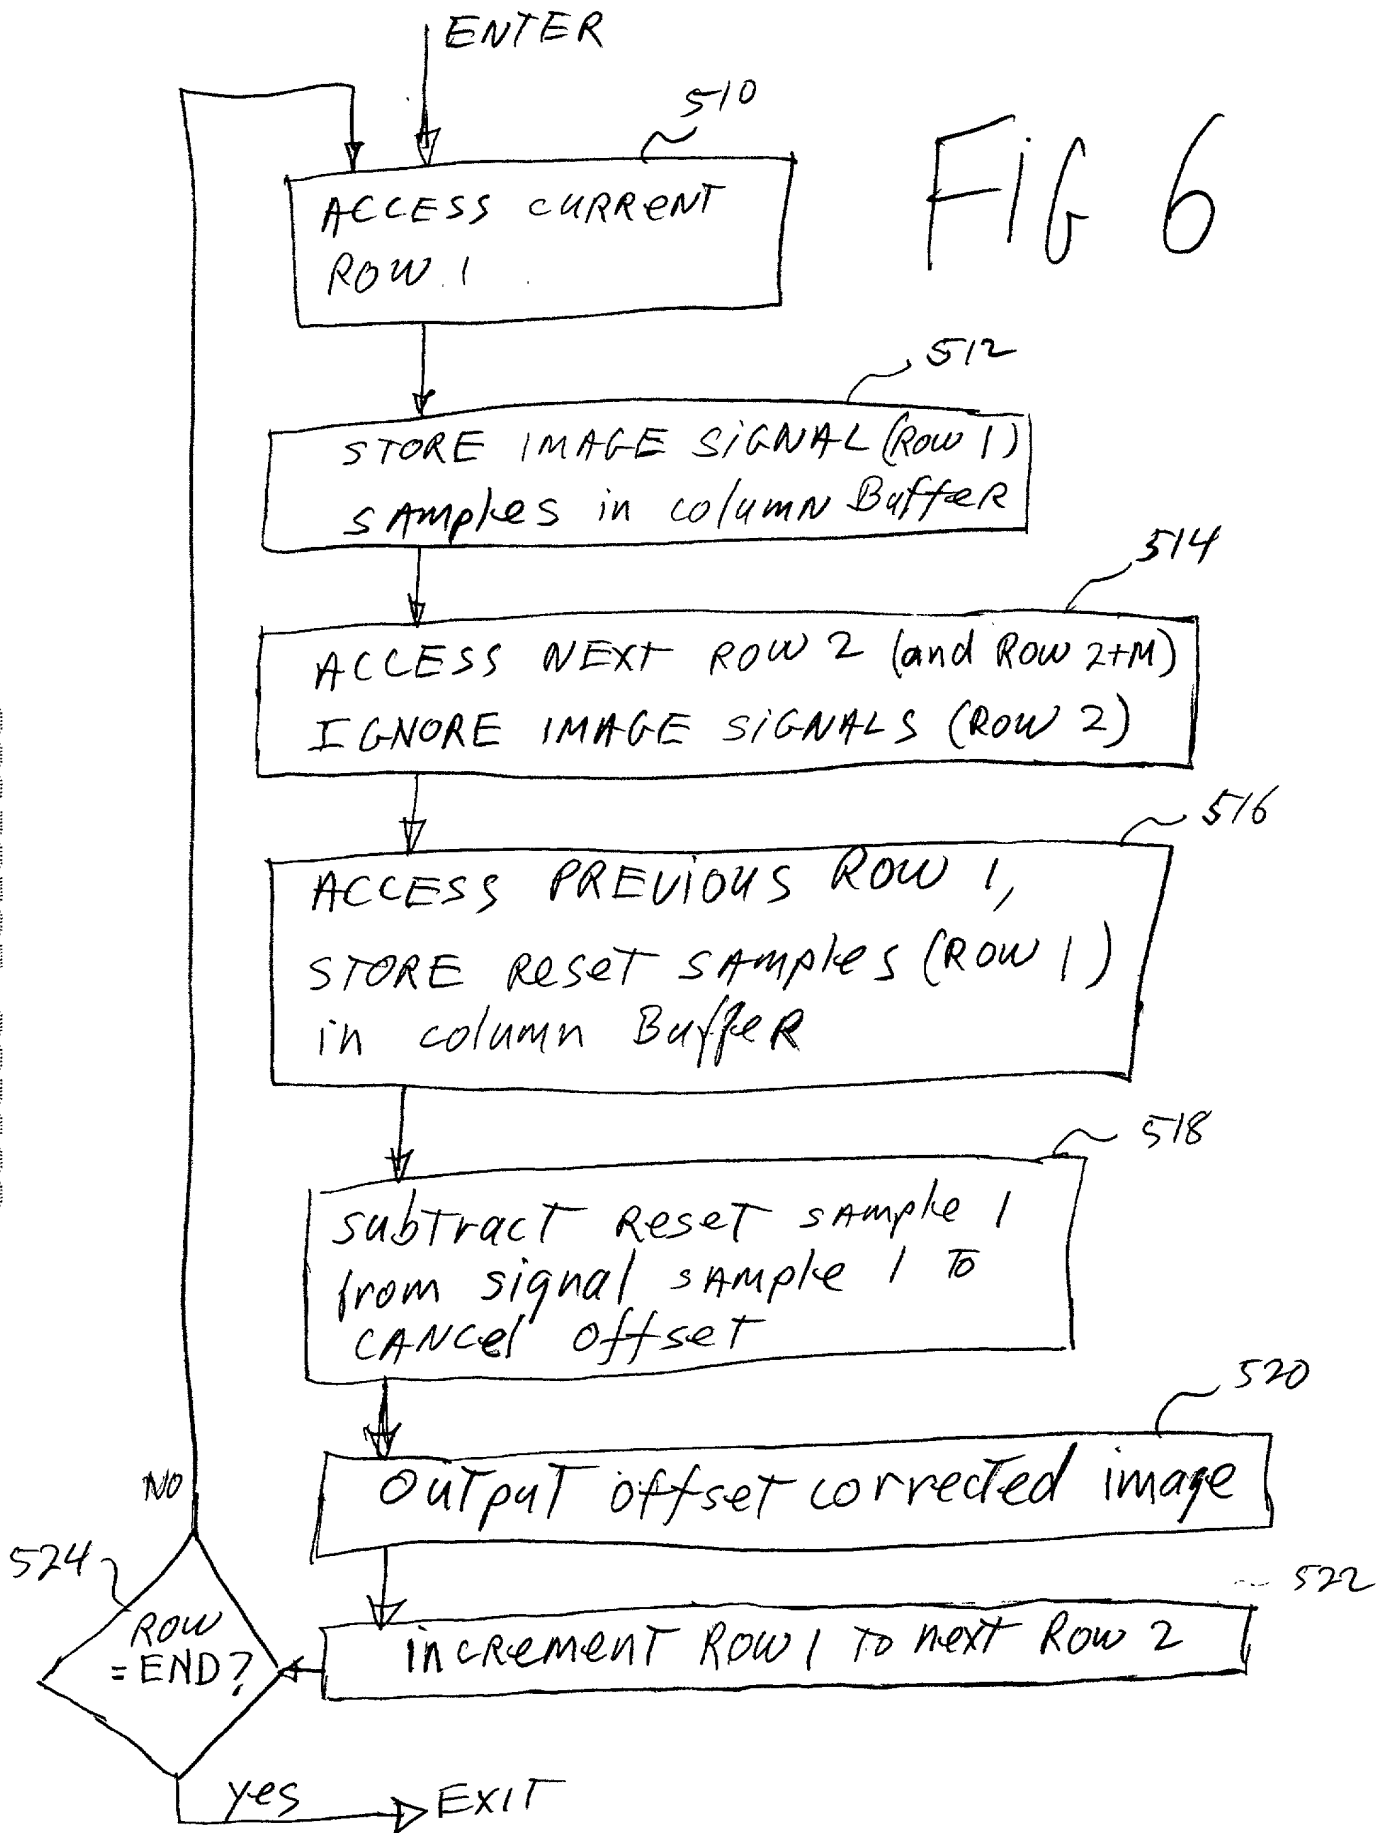 ENTER
510
FiG 6
ACCESS CURRENT
ROW 1
512
STORE IMAGE SiGNAL (Row 1)
SAmples in column BuffeR
514
ACCESS NEXT ROW 2 (and Row 2+M)
IGNORE IMAGE SiGNALS (Row 2)
516
ACCESS PREViOUS ROW 1,
STORE ReseT SAmples (ROW 1)
in column BuffeR
518
SubTracT ReseT SAmple 1
from signal SAmple 1 To
CANCel OffseT
520
OuTpuT offseT corrected image
NO
524
522
ROW
= END?
inCRement Row 1 To next Row 2
yes
EXIT